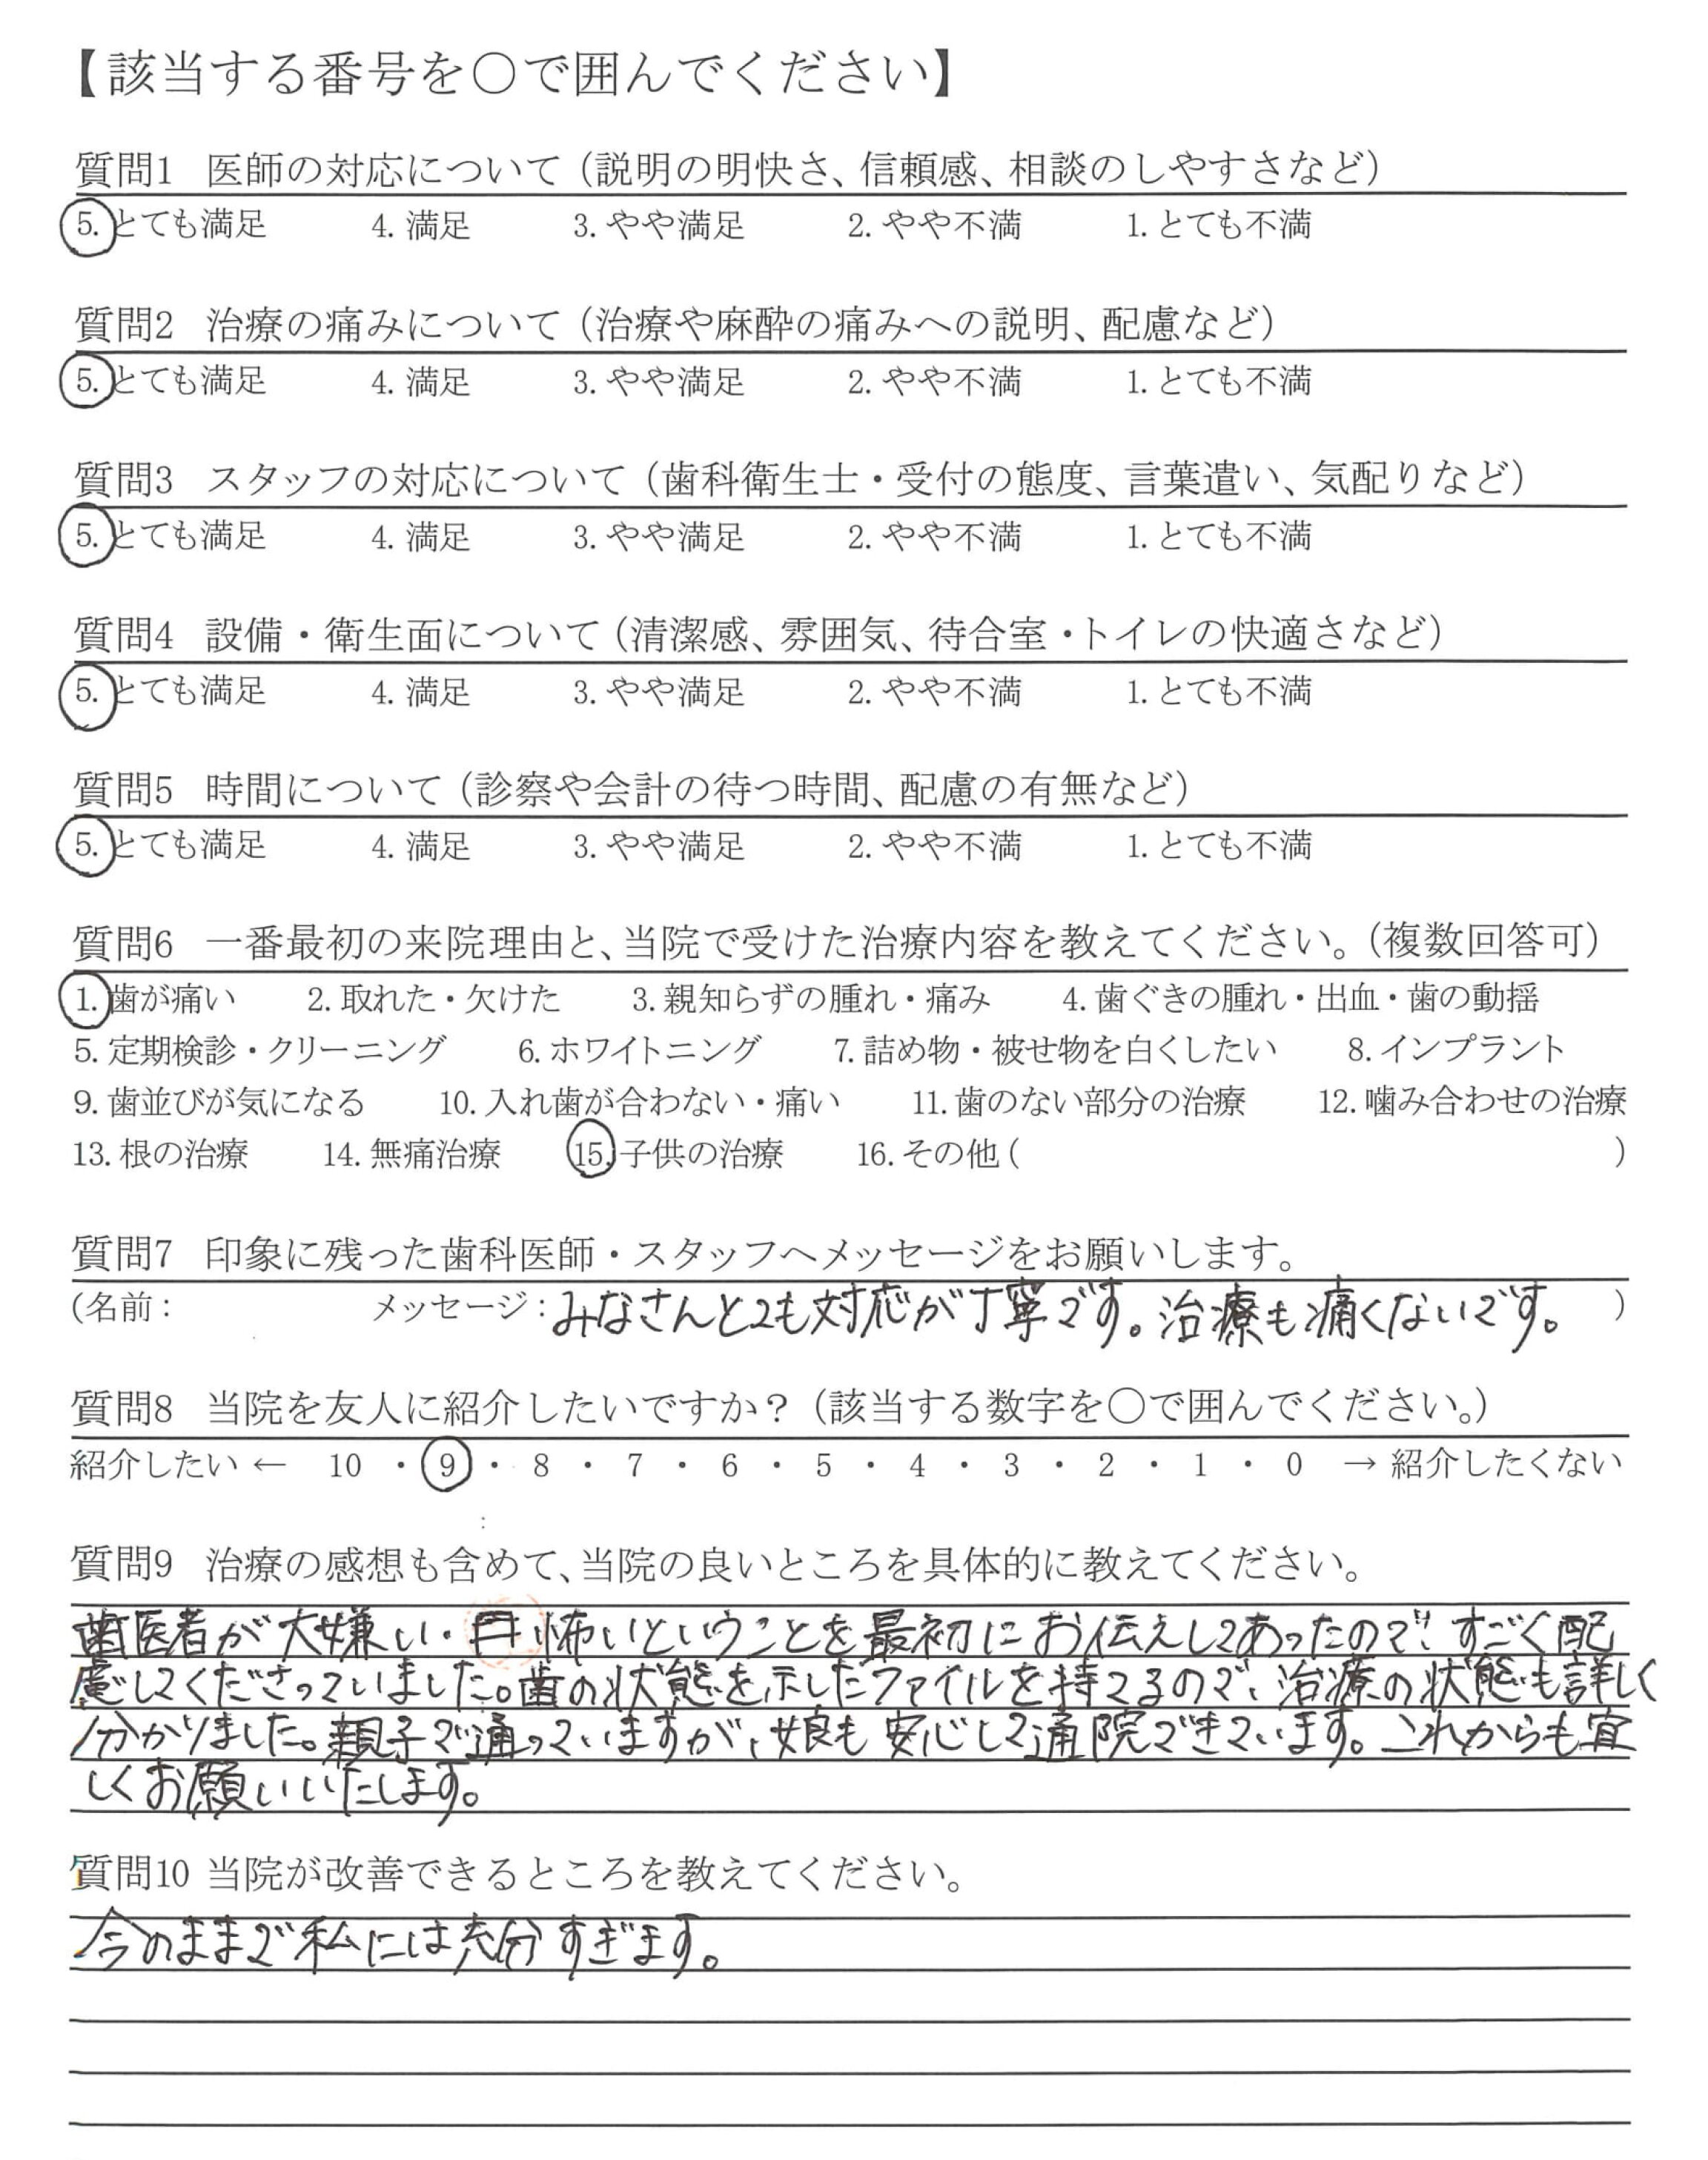 【該当する番号を〇で囲んでください】
質問1 医師の対応について（説明の明快さ、信頼感、相談のしやすさなど）
5. とても満足 4. 満足 3. やや満足 2. やや不満 1. とても不満
質問2 治療の痛みについて（治療や麻酔の痛みへの説明、配慮など）
5. とても満足 4. 満足 3. やや満足 2. やや不満 1. とても不満
質問3 スタッフの対応について（歯科衛生士・受付の態度、言葉遣い、気配りなど）
5. とても満足 4. 満足 3. やや満足 2. やや不満 1. とても不満
質問4 設備・衛生面について（清潔感、雰囲気、待合室・トイレの快適さなど）
5. とても満足 4. 満足 3. やや満足 2. やや不満 1. とても不満
質問5 時間について（診察や会計の待つ時間、配慮の有無など）
5. とても満足 4. 満足 3. やや満足 2. やや不満 1. とても不満
質問6 一番最初の来院理由と、当院で受けた治療内容を教えてください。（複数回答可）
1. 歯が痛い 2. 取れた・欠けた 3. 親知らずの腫れ・痛み 4. 歯ぐきの腫れ・出血・歯の動揺
5. 定期検診・クリーニング 6. ホワイトニング 7. 詰め物・被せ物を白くしたい 8. インプラント
9. 歯並びが気になる 10. 入れ歯が合わない・痛い 11. 歯のない部分の治療 12. 噛み合わせの治療
13. 根の治療 14. 無痛治療 15. 子供の治療 16. その他（ ）
質問7 印象に残った歯科医師・スタッフへメッセージをお願いします。
（名前： メッセージ：みなさんとても対応が丁寧です。治療も痛くないです。）
質問8 当院を友人に紹介したいですか？（該当する数字を〇で囲んでください。）
紹介したい ← 10 ・ 9 ・ 8 ・ 7 ・ 6 ・ 5 ・ 4 ・ 3 ・ 2 ・ 1 ・ 0 → 紹介したくない
質問9 治療の感想も含めて、当院の良いところを具体的に教えてください。
歯医者が大嫌い・怖いということを最初にお伝えしてあったので、すごく配
慮してくださっていました。歯の状態を示したファイルを持てるので、治療の状態も詳しく
分かりました。親子で通っていますが、娘も安心して通院できています。これからも宜
しくお願いいたします。
質問10 当院が改善できるところを教えてください。
今のままで私には充分すぎます。